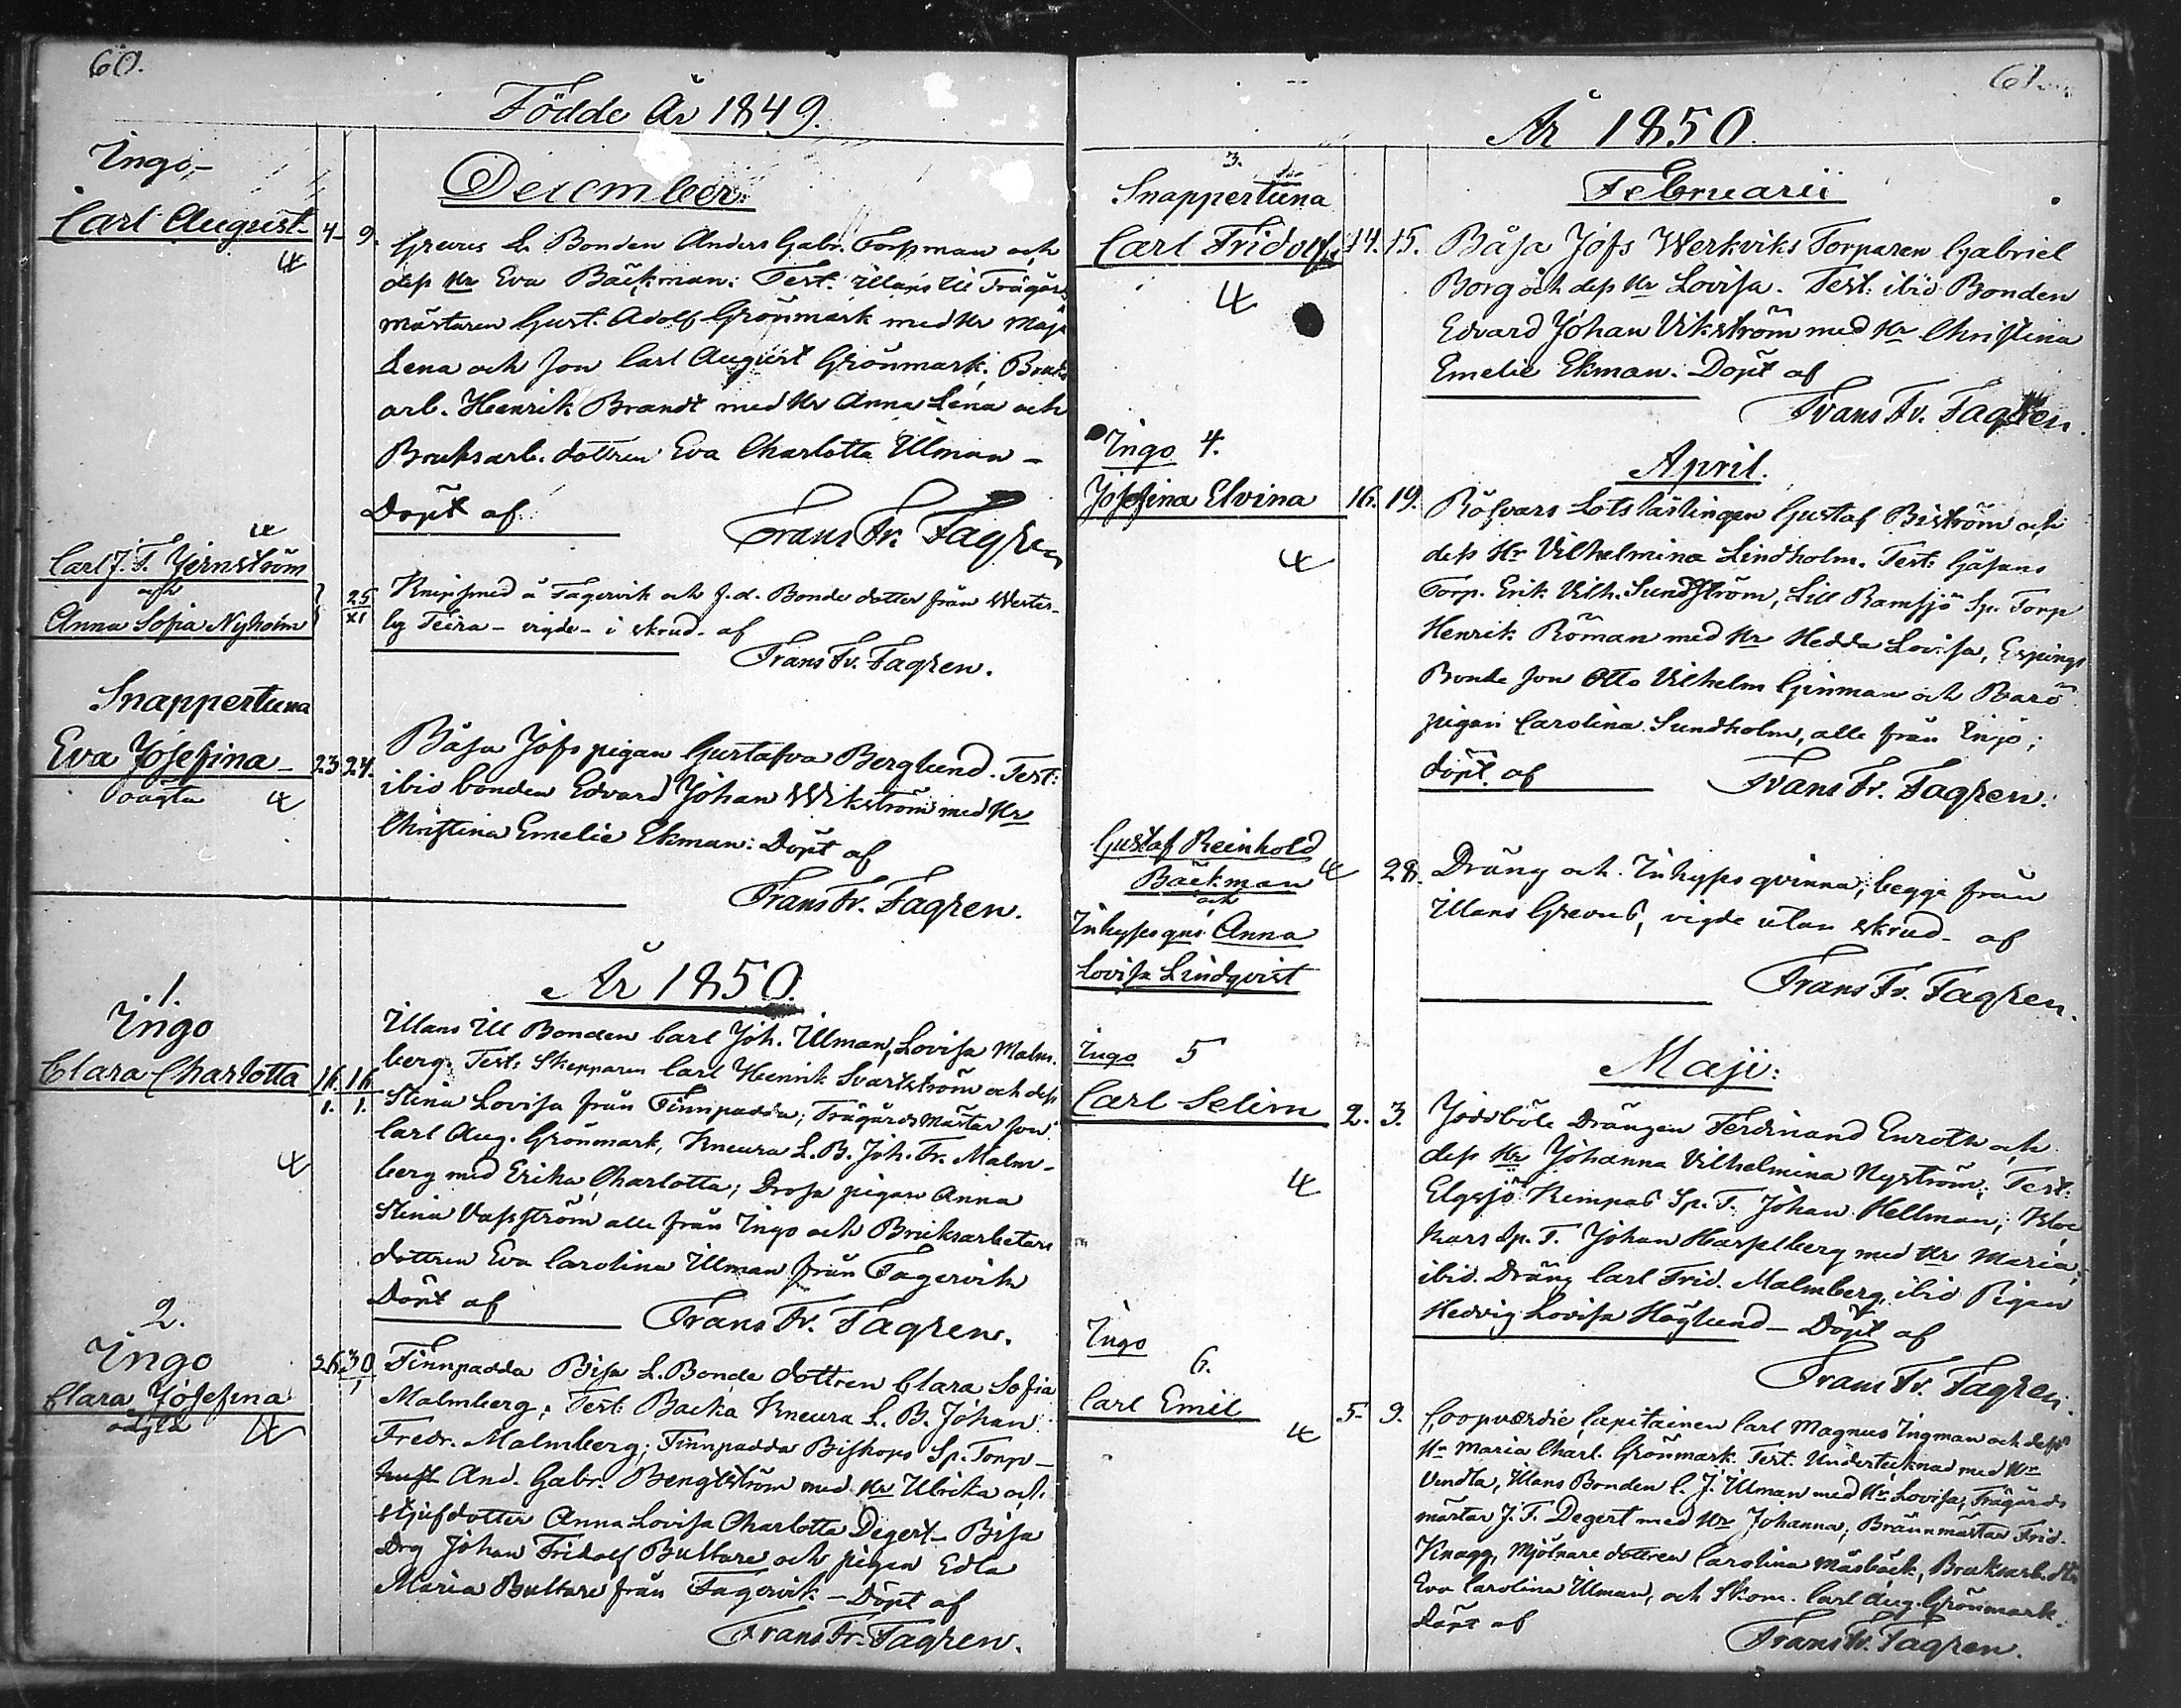 60.
Födde År 1849.
Ingo,-
December:
Carl August 4- 9.
Grevus L. Bonden Anders Gabr. Forsman och
dess Hr Eva Bäckman: Test. Illans Ill Trägårds
mästaren Gust. Adolf Grönmark med Hr Maja
Lena och son Carl August Grönmark; Bruks
arb. Henrik Brandt med Hr Anna Lena och
Bruksarb. dottren Eva Charlotta Ulman -
Döpt af
Frans Fr. Fagren
Carl J. F. Gernström
och
Anna Sofia Nyholm
25
XI
Knipsmed å Fagervik och f.d. Bonde dotter från Wester-
by Teira - vigde - i skrud - af
Frans Fr. Fagren.
Snappertuna
Eva Josefina - 23 24.
oägta
Båsa Jofs pigan Gustafva Berglund. Test:
ibid bonden Edvard Johan Wikström med Hr
Christina Emelie Ekman: Döpt af
Frans Fr. Fagren.
År 1850.
1.
Ingo
Clara Charlotta 16. 16.
1. 1.
Illans Ill Bonden Carl Joh. Ulman, Lovisa Malm-
berg. Test: Skepparen Carl Henrik Svartström och dess
Stina Lovisa från Finnpadda; Trägårds Mästar son
Carl Aug. Grönmark, Kneura L. B. Joh. Fr. Malm-
berg med Erika Charlotta; Drosa pigan Anna
Stina Vasström alle från Ingo och Bruksarbetare
dottren Eva Carolina Ulman från Fagervik
Döpt af
Frans Fr. Fagren.
2.
Ingo
Clara Josefina 26 30
1
oägta
Finnpadda Bisa L. Bonde dottren Clara Sofia
Malmberg; Test: Backa Kneura L. B. Johan
Fredr. Malmberg; Finnpadda Biskops Sp. Torp-
And. Gabr. Bengtström med Hr Ulrika och
stjufdotter Anna Lovisa Charlotta Degert - Bisa
Drg Johan Fridolf Bultare och pigan Edla
Maria Bultare från Fagervik - Döpt af
Frans Fr. Fagren.
61
År 1850.
3.
Snappertuna
Februarii
Carl Fridolf 14. 15.
Båsa Jofs Werkviks Torparen Gabriel
Borg och dess Hr Lovisa. Test: ibid Bonden
Edvard Johan Vikström med Hr Christina
Emelie Ekman: Döpt af
Frans Fr. Fagren.
Ingo 4.
April.
Josefina Elvina 16. 19.
Röfvars Lots lärlingen Gustaf Biström och
dess Hr Vilhelmina Lindholm. Test: Gåsans
Torp. Erik Vilh. Sundström, Lill Ramsjö Sp. Torp
Henrik Röman med Hr Hedda Lovisa, Espings
Bonde son Otto Vilhelm Ginman och Barö
pigan Carolina Sundholm, alle från Ingo;
döpt af
Frans Fr. Fagren.
Gustaf Reinhold
Bäckman
och
Inhyses qvi. Anna
Lovisa Lindqvist
28.
Dräng och Inhyses qvinna, begge från
Illans Grevus, vigde utan skrud - af
Frans Fr. Fagren.
Ingo 5
Maji:
Carl Selim 2. 3.
Joddböle Drängen Ferdinand Enroth och
dess Hr Johanna Vilhelmina Nyström; Test:
Elgsjö Kimpas Sp. T. Johan Hellman; Kloc
kars Sp. T. Johan Hasselberg med Hr Maria;
ibid. Dräng Carl Frid. Malmberg, ibid Pigan
Hedvig Lovisa Höglund - Döpt af
Frans Fr. Fagren.
Ingo
6.
Carl Emil 5- 9.
Coopvædie Capitainen Carl Magnus Ingman och dess
Hr Maria Charl. Grönmark. Test. Undertecknad med Hr
Vendla, Illans Bonden C. J. Ulman med Hr Lovisa; Trägårds
mästar J. F. Degert med Hr Johanna; Brännmästar Frid.
Knagg, Mjölnare dottren Carolina Måsbäck, Bruksarb. dtr
Eva Carolina Ulman, och Skom. Carl Aug. Grönmark.
Döpt af
Frans Fr. Fagren.